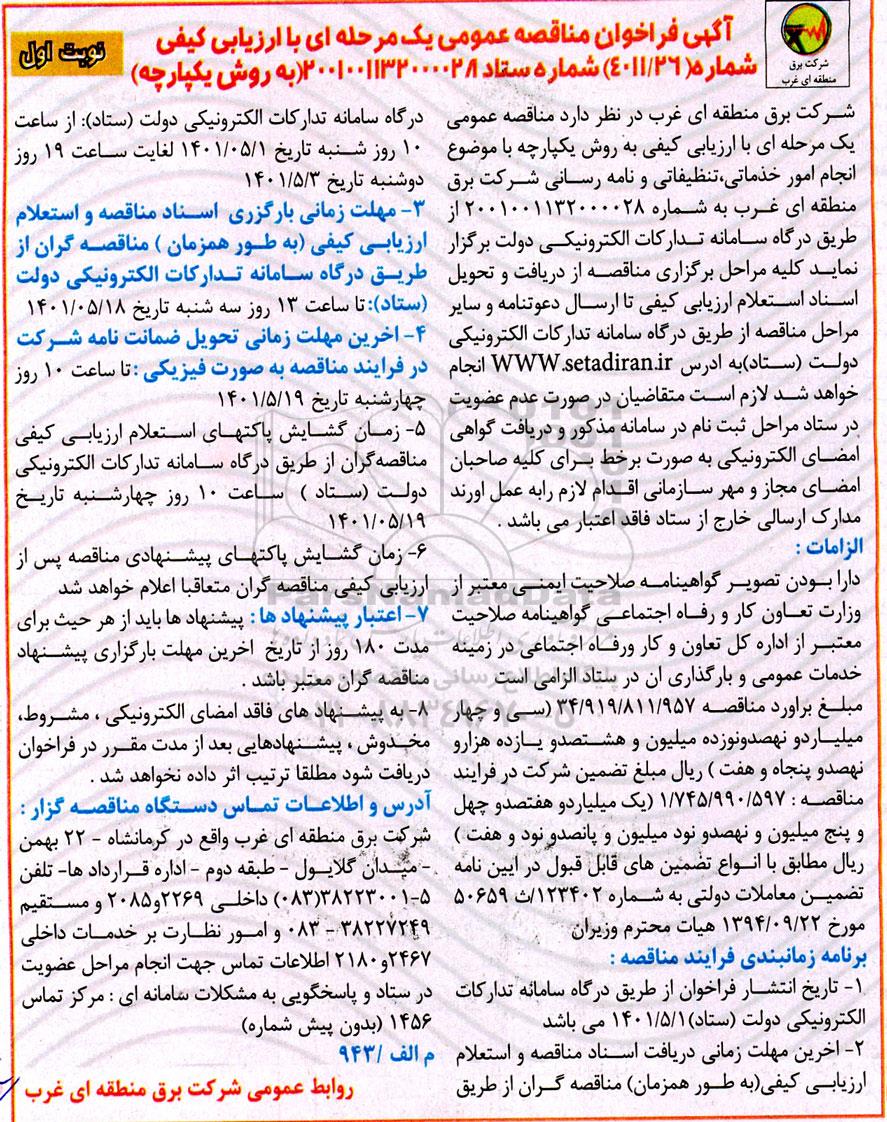 آگهی فراخوان مناقصه عمومی یک مرحله ای با ارزیابی کیفی
شماره (۴۰۱۱/۲۶) شماره ستاد ۲۰۰۱۰۰۱۱۳۲۰۰۰۰۲۸ (به روش یکپارچه)
نوبت اول
شرکت برق
منطقه ای غرب
شرکت برق منطقه ای غرب در نظر دارد مناقصه عمومی
یک مرحله ای با ارزیابی کیفی به روش یکپارچه با موضوع
انجام امور خدماتی،تنظیفاتی و نامه رسانی شرکت برق
منطقه ای غرب به شماره ۲۰۰۱۰۰۱۱۳۲۰۰۰۰۲۸ از
طریق درگاه سامانه تدارکات الکترونیکی دولت برگزار
نماید کلیه مراحل برگزاری مناقصه از دریافت و تحویل
اسناد استعلام ارزیابی کیفی تا ارسال دعوتنامه و سایر
مراحل مناقصه از طریق درگاه سامانه تدارکات الکترونیکی
دولت (ستاد)به ادرس WWW.setadiran.ir انجام
خواهد شد لازم است متقاضیان در صورت عدم عضویت
در ستاد مراحل ثبت نام در سامانه مذکور و دریافت گواهی
امضای الکترونیکی به صورت برخط برای کلیه صاحبان
امضای مجاز و مهر سازمانی اقدام لازم رابه عمل اورند
مدارک ارسالی خارج از ستاد فاقد اعتبار می باشد .
الزامات :
دارا بودن تصویر گواهینامه صلاحیت ایمنی معتبر از
وزارت تعاون کار و رفاه اجتماعی گواهینامه صلاحیت
معتبر از اداره کل تعاون و کار ورفاه اجتماعی در زمینه
خدمات عمومی و بارگذاری ان در ستاد الزامی است
مبلغ براورد مناقصه ۳۴/۹۱۹/۸۱۱/۹۵۷ (سی و چهار
میلیاردو نهصدونوزده میلیون و هشتصدو یازده هزارو
نهصدو پنجاه و هفت ) ریال مبلغ تضمین شرکت در فرایند
مناقصه : ۱/۷۴۵/۹۹۰/۵۹۷ (یک میلیاردو هفتصدو چهل
و پنج میلیون و نهصدو نود میلیون و پانصدو نود و هفت )
ریال مطابق با انواع تضمین های قابل قبول در ایین نامه
تضمین معاملات دولتی به شماره ۱۲۳۴۰۲/ث ۵۰۶۵۹
مورخ ۱۳۹۴/۰۹/۲۲ هیات محترم وزیران
برنامه زمانبندی فرایند مناقصه :
۱- تاریخ انتشار فراخوان از طریق درگاه سامانه تدارکات
الکترونیکی دولت (ستاد)۱۴۰۱/۵/۱ می باشد
۲- اخرین مهلت زمانی دریافت اسناد مناقصه و استعلام
ارزیابی کیفی(به طور همزمان) مناقصه گران از طریق
درگاه سامانه تدارکات الکترونیکی دولت (ستاد): از ساعت
۱۰ روز شنبه تاریخ ۱۴۰۱/۰۵/۱ لغایت ساعت ۱۹ روز
دوشنبه تاریخ ۱۴۰۱/۵/۳
۳- مهلت زمانی بارگزری اسناد مناقصه و استعلام
ارزیابی کیفی (به طور همزمان ) مناقصه گران از
طریق درگاه سامانه تدارکات الکترونیکی دولت
(ستاد): تا ساعت ۱۳ روز سه شنبه تاریخ ۱۴۰۱/۰۵/۱۸
۴- اخرین مهلت زمانی تحویل ضمانت نامه شرکت
در فرایند مناقصه به صورت فیزیکی : تا ساعت ۱۰ روز
چهارشنبه تاریخ ۱۴۰۱/۵/۱۹
۵- زمان گشایش پاکتهای استعلام ارزیابی کیفی
مناقصه‌گران از طریق درگاه سامانه تدارکات الکترونیکی
دولت (ستاد ) ساعت ۱۰ روز چهارشنبه تاریخ
۱۴۰۱/۰۵/۱۹
۶- زمان گشایش پاکتهای پیشنهادی مناقصه پس از
ارزیابی کیفی مناقصه گران متعاقبا اعلام خواهد شد
۷- اعتبار پیشنهاد ها : پیشنهاد ها باید از هر حیث برای
مدت ۱۸۰ روز از تاریخ اخرین مهلت بارگزاری پیشنهاد
مناقصه گران معتبر باشد .
۸- به پیشنهاد های فاقد امضای الکترونیکی ، مشروط،
مخدوش ، پیشنهادهایی بعد از مدت مقرر در فراخوان
دریافت شود مطلقا ترتیب اثر داده نخواهد شد .
آدرس و اطلاعات تماس دستگاه مناقصه گزار :
شرکت برق منطقه ای غرب واقع در کرمانشاه - ۲۲ بهمن
- میدان گلایول - طبقه دوم - اداره قرارداد ها- تلفن
۵-۳۸۲۲۳۰۰۱(۰۸۳) داخلی ۲۲۶۹و۲۰۸۵ و مستقیم
۳۸۲۲۷۲۴۹ - ۰۸۳ و امور نظارت بر خدمات داخلی
۲۴۶۷و۲۱۸۰ اطلاعات تماس جهت انجام مراحل عضویت
در ستاد و پاسخگویی به مشکلات سامانه ای : مرکز تماس
۱۴۵۶ (بدون پیش شماره)
م الف /۹۴۳
روابط عمومی شرکت برق منطقه ای غرب